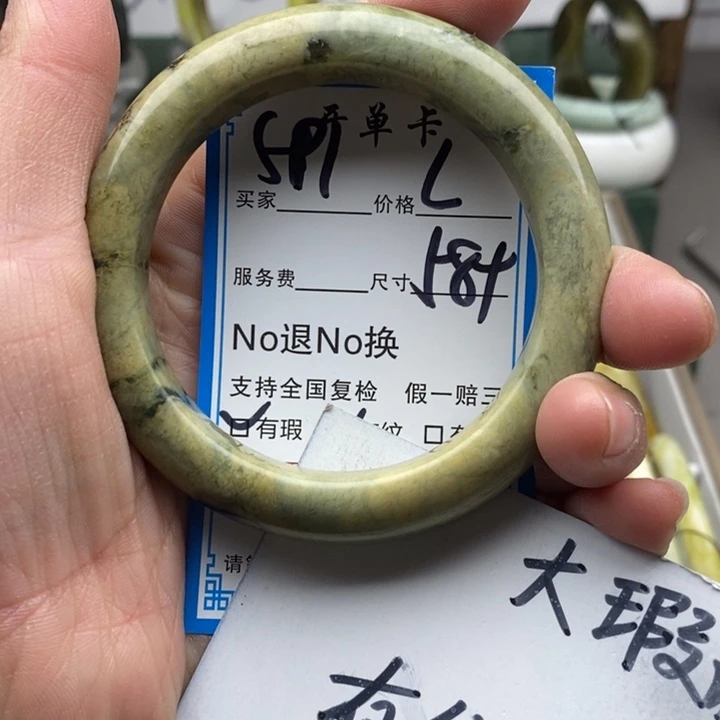 开单卡
买家 价格 L
服务费 尺寸 584
No退No换
支持全国复检 假一赔三
有瑕 纹
请
大瑕
有